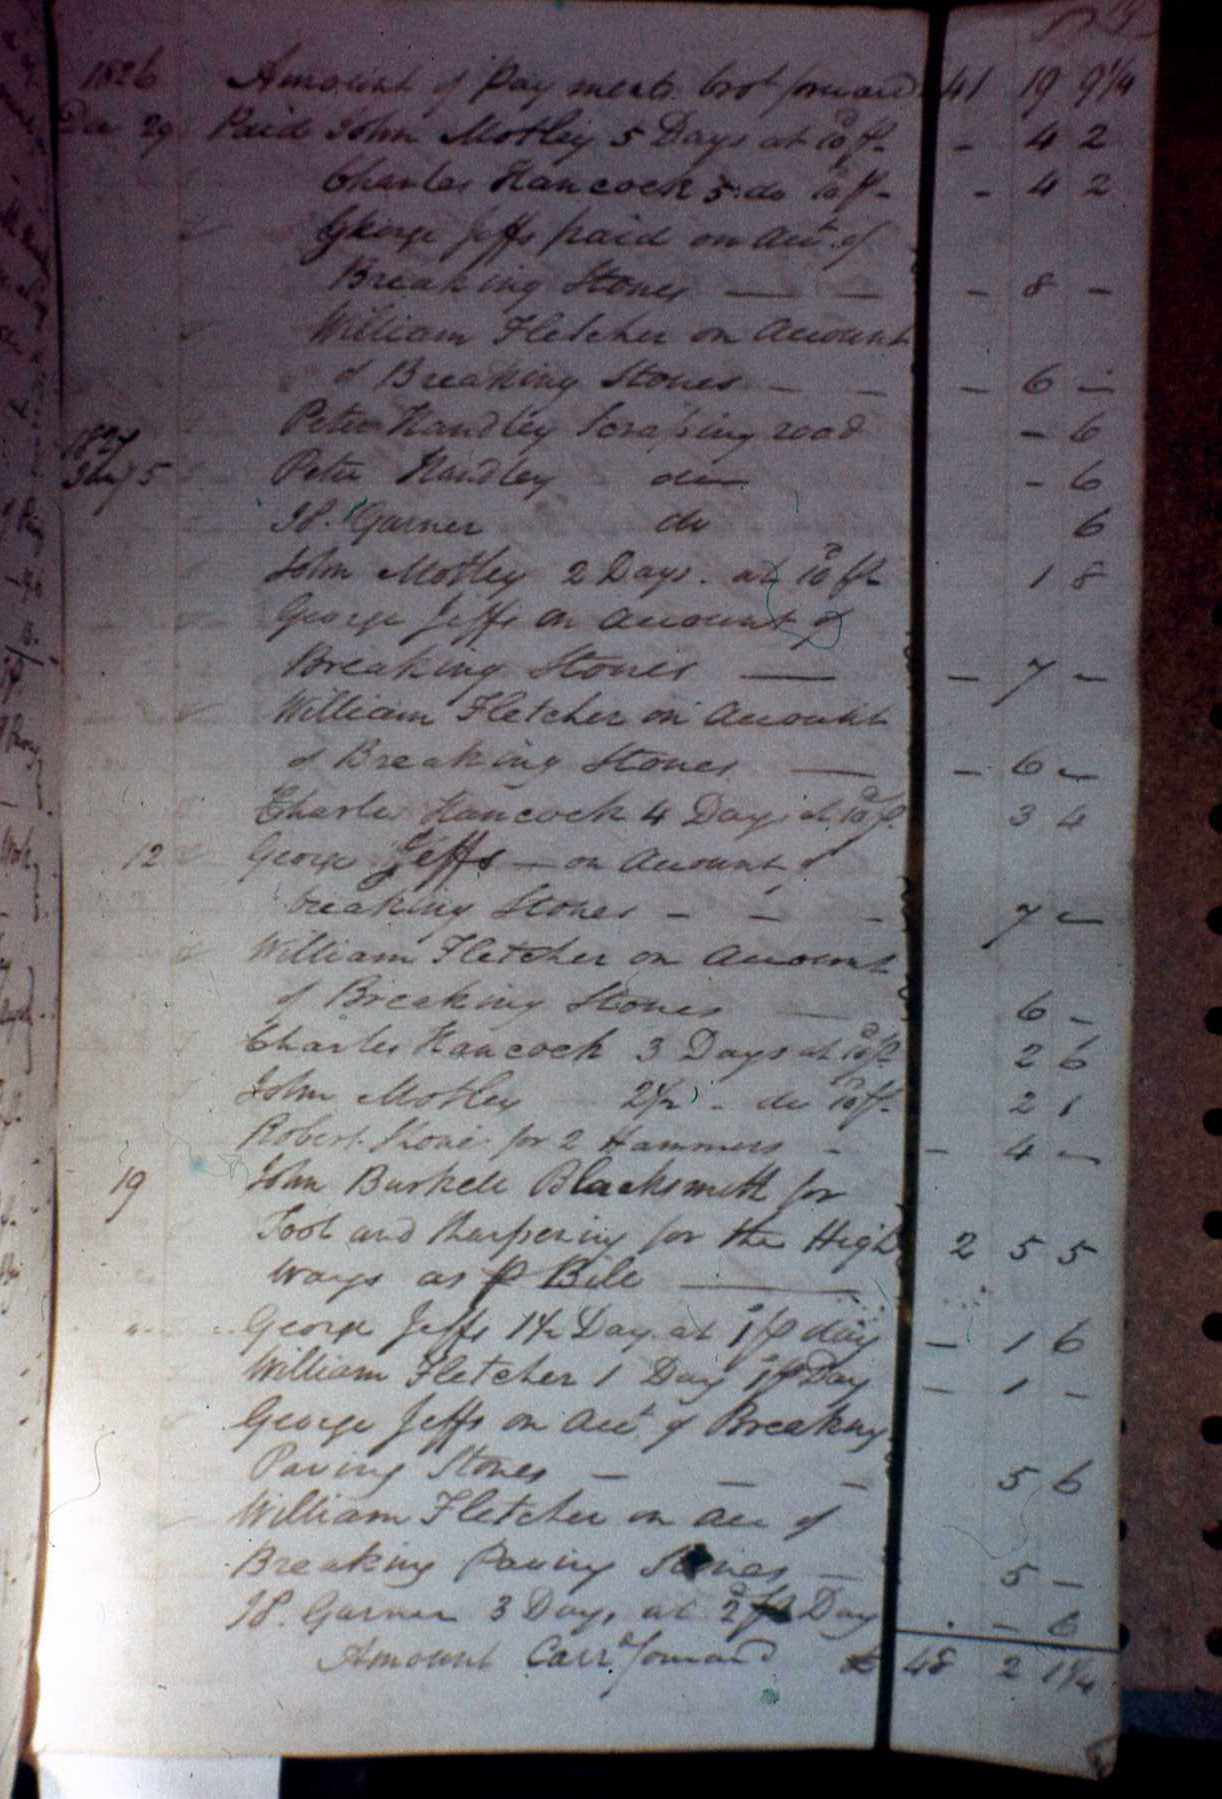 1826 Amount of Payments brot forward 41 19 9 1/4
Dec 29 Paid John Motley 5 Days at 10d p - - 4 2
Charles Hancock 5 do 10 p - - 4 2
George Jeffs paid on Act. of
Breaking Stones — — - 8 -
William Fletcher on Account
of Breaking Stones - - - 6 -
Peter Handley Scraping road - 6
1827
Jany 5 Peter Handley do - 6
Garner do 6
John Motley 2 Days. at 10d p 1 8
George Jeffs on account of
Breaking Stones — - 7 -
William Fletcher on Account
of Breaking Stones — - 6 -
Charles Hancock 4 Days at 10d p. 3 4
12 George Jeffs — on Account of
breaking Stones - - - 7 -
William Fletcher on Account
of Breaking Stones — 6 -
Charles Hancock 3 Days at 10d p 2 6
John Motley 2 1/2 - do 10d p - 2 1
Robert for 2 Hammers - - 4 -
19 John Burkett Blacksmith for
Tools and Sharpening for the High 2 5 5
ways as P Bill —
George Jeffs 1 1/2 Day at 1s p day - 1 6
William Fletcher 1 Day 1s p Day - 1 -
George Jeffs on Act of Breaking
Paving Stones - - - 5 6
William Fletcher on Acc of
Breaking Paving Stones - 5 -
Garner 3 Days at 2d p Day - - 6
Amount Carrd forward £ 48 2 1 1/4